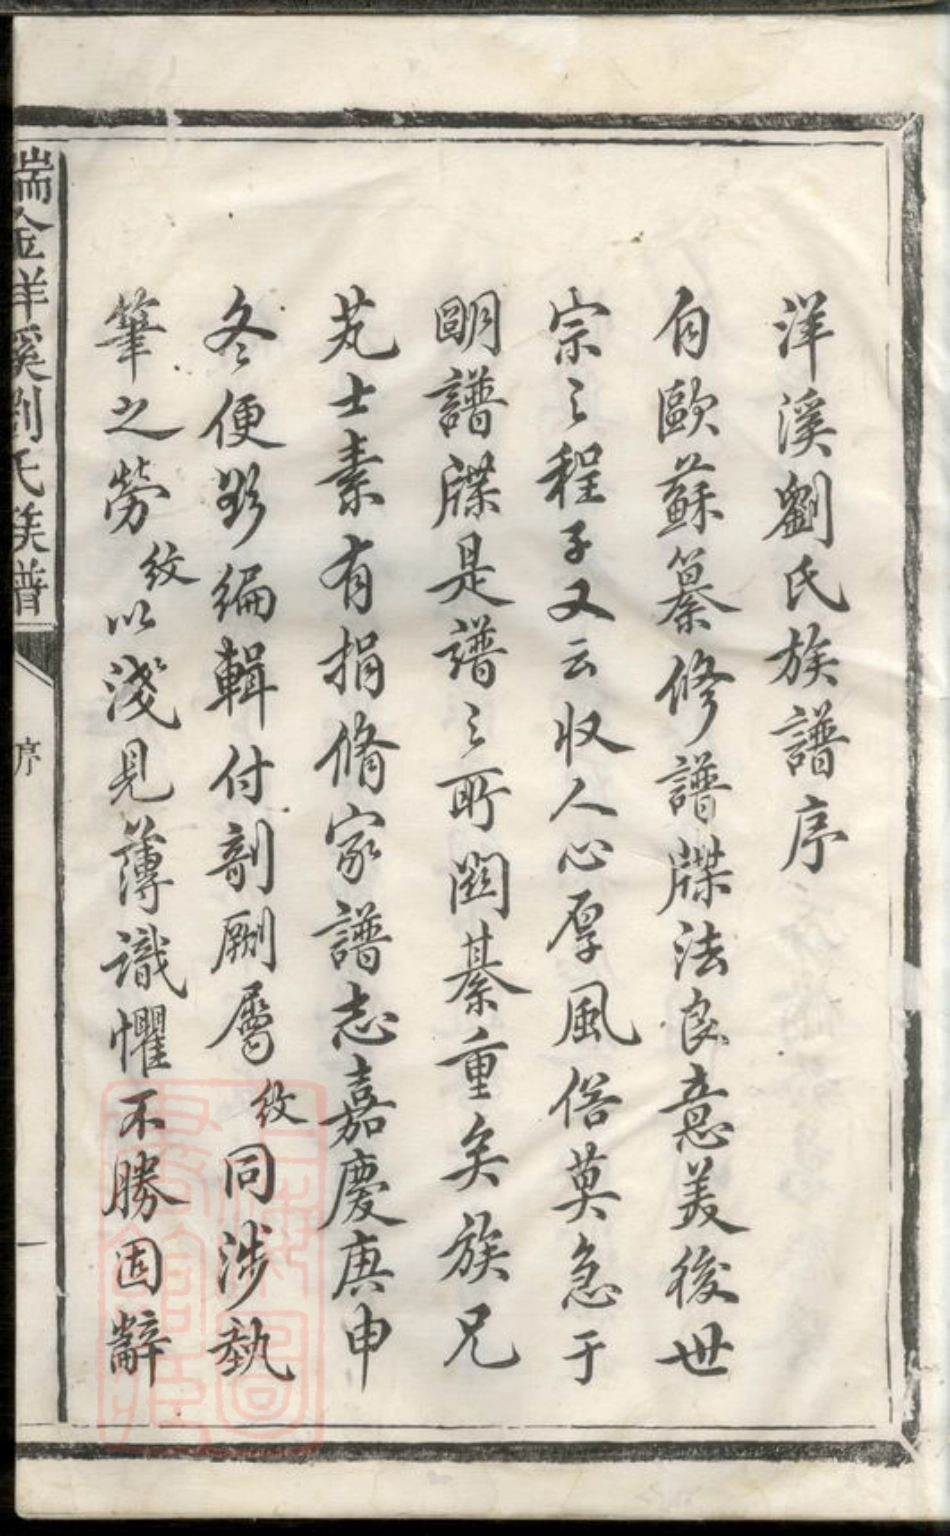 洋溪劉氏族譜序
自歐蘇纂修譜牒法良意美後世
宗之程子又云收人心厚風俗莫急于
明譜牒是譜之所關綦重矣族兄
芄士素有捐脩家譜志嘉慶庚申
冬便欲編輯付剞劂屬紋同涉執
筆之勞紋以淺見薄識懼不勝固辭
瑞金洋溪劉氏族譜
序
一